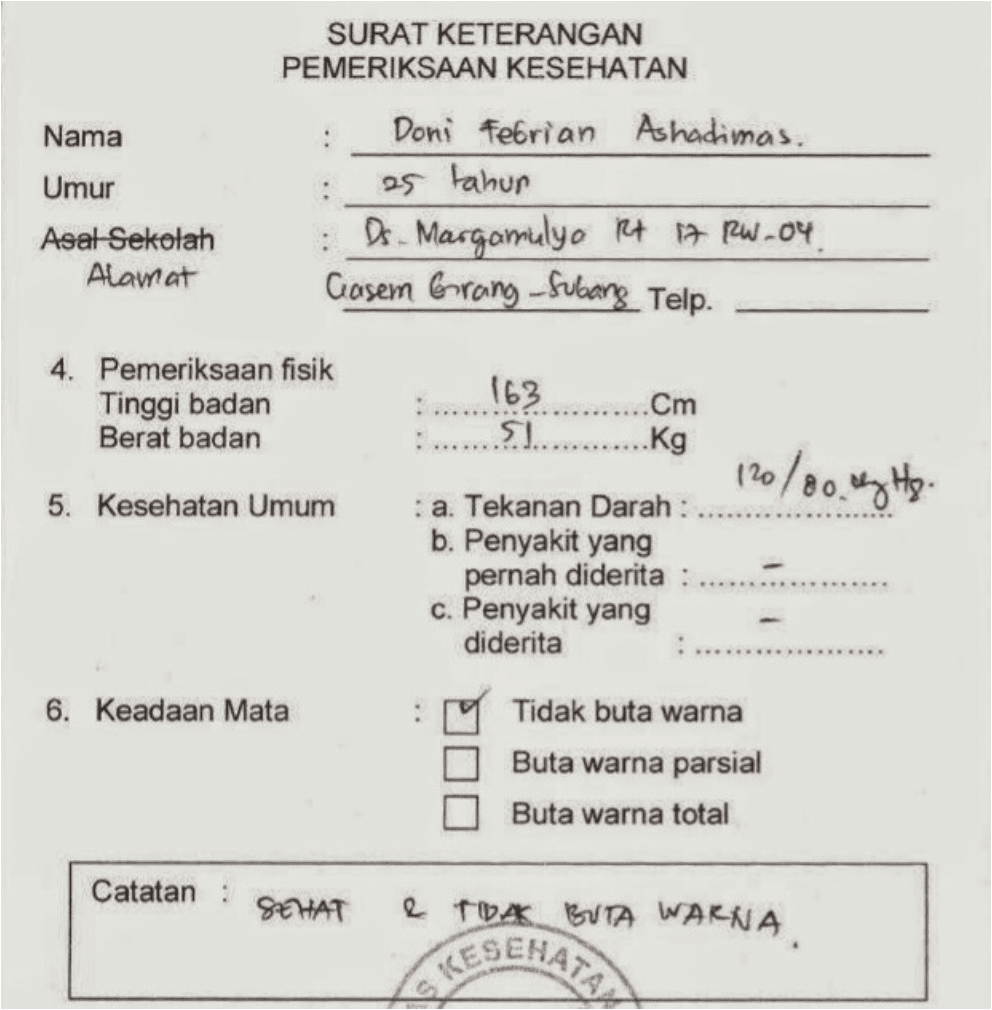 SURAT KETERANGAN
PEMERIKSAAN KESEHATAN
Nama : Doni Febrian Ashadimas.
Umur : 25 tahun
Asal Sekolah : Ds. Margamulyo Rt 17 RW-04.
Alamat
Girang - Subang Telp.
4. Pemeriksaan fisik
Tinggi badan : 163 Cm
Berat badan : 51 Kg
120/80 mmHg.
5. Kesehatan Umum : a. Tekanan Darah :
b. Penyakit yang
pernah diderita : -
c. Penyakit yang
diderita : -
6. Keadaan Mata : Tidak buta warna
Buta warna parsial
Buta warna total
Catatan : SEHAT & TIDAK BUTA WARNA.
KESEHATAN